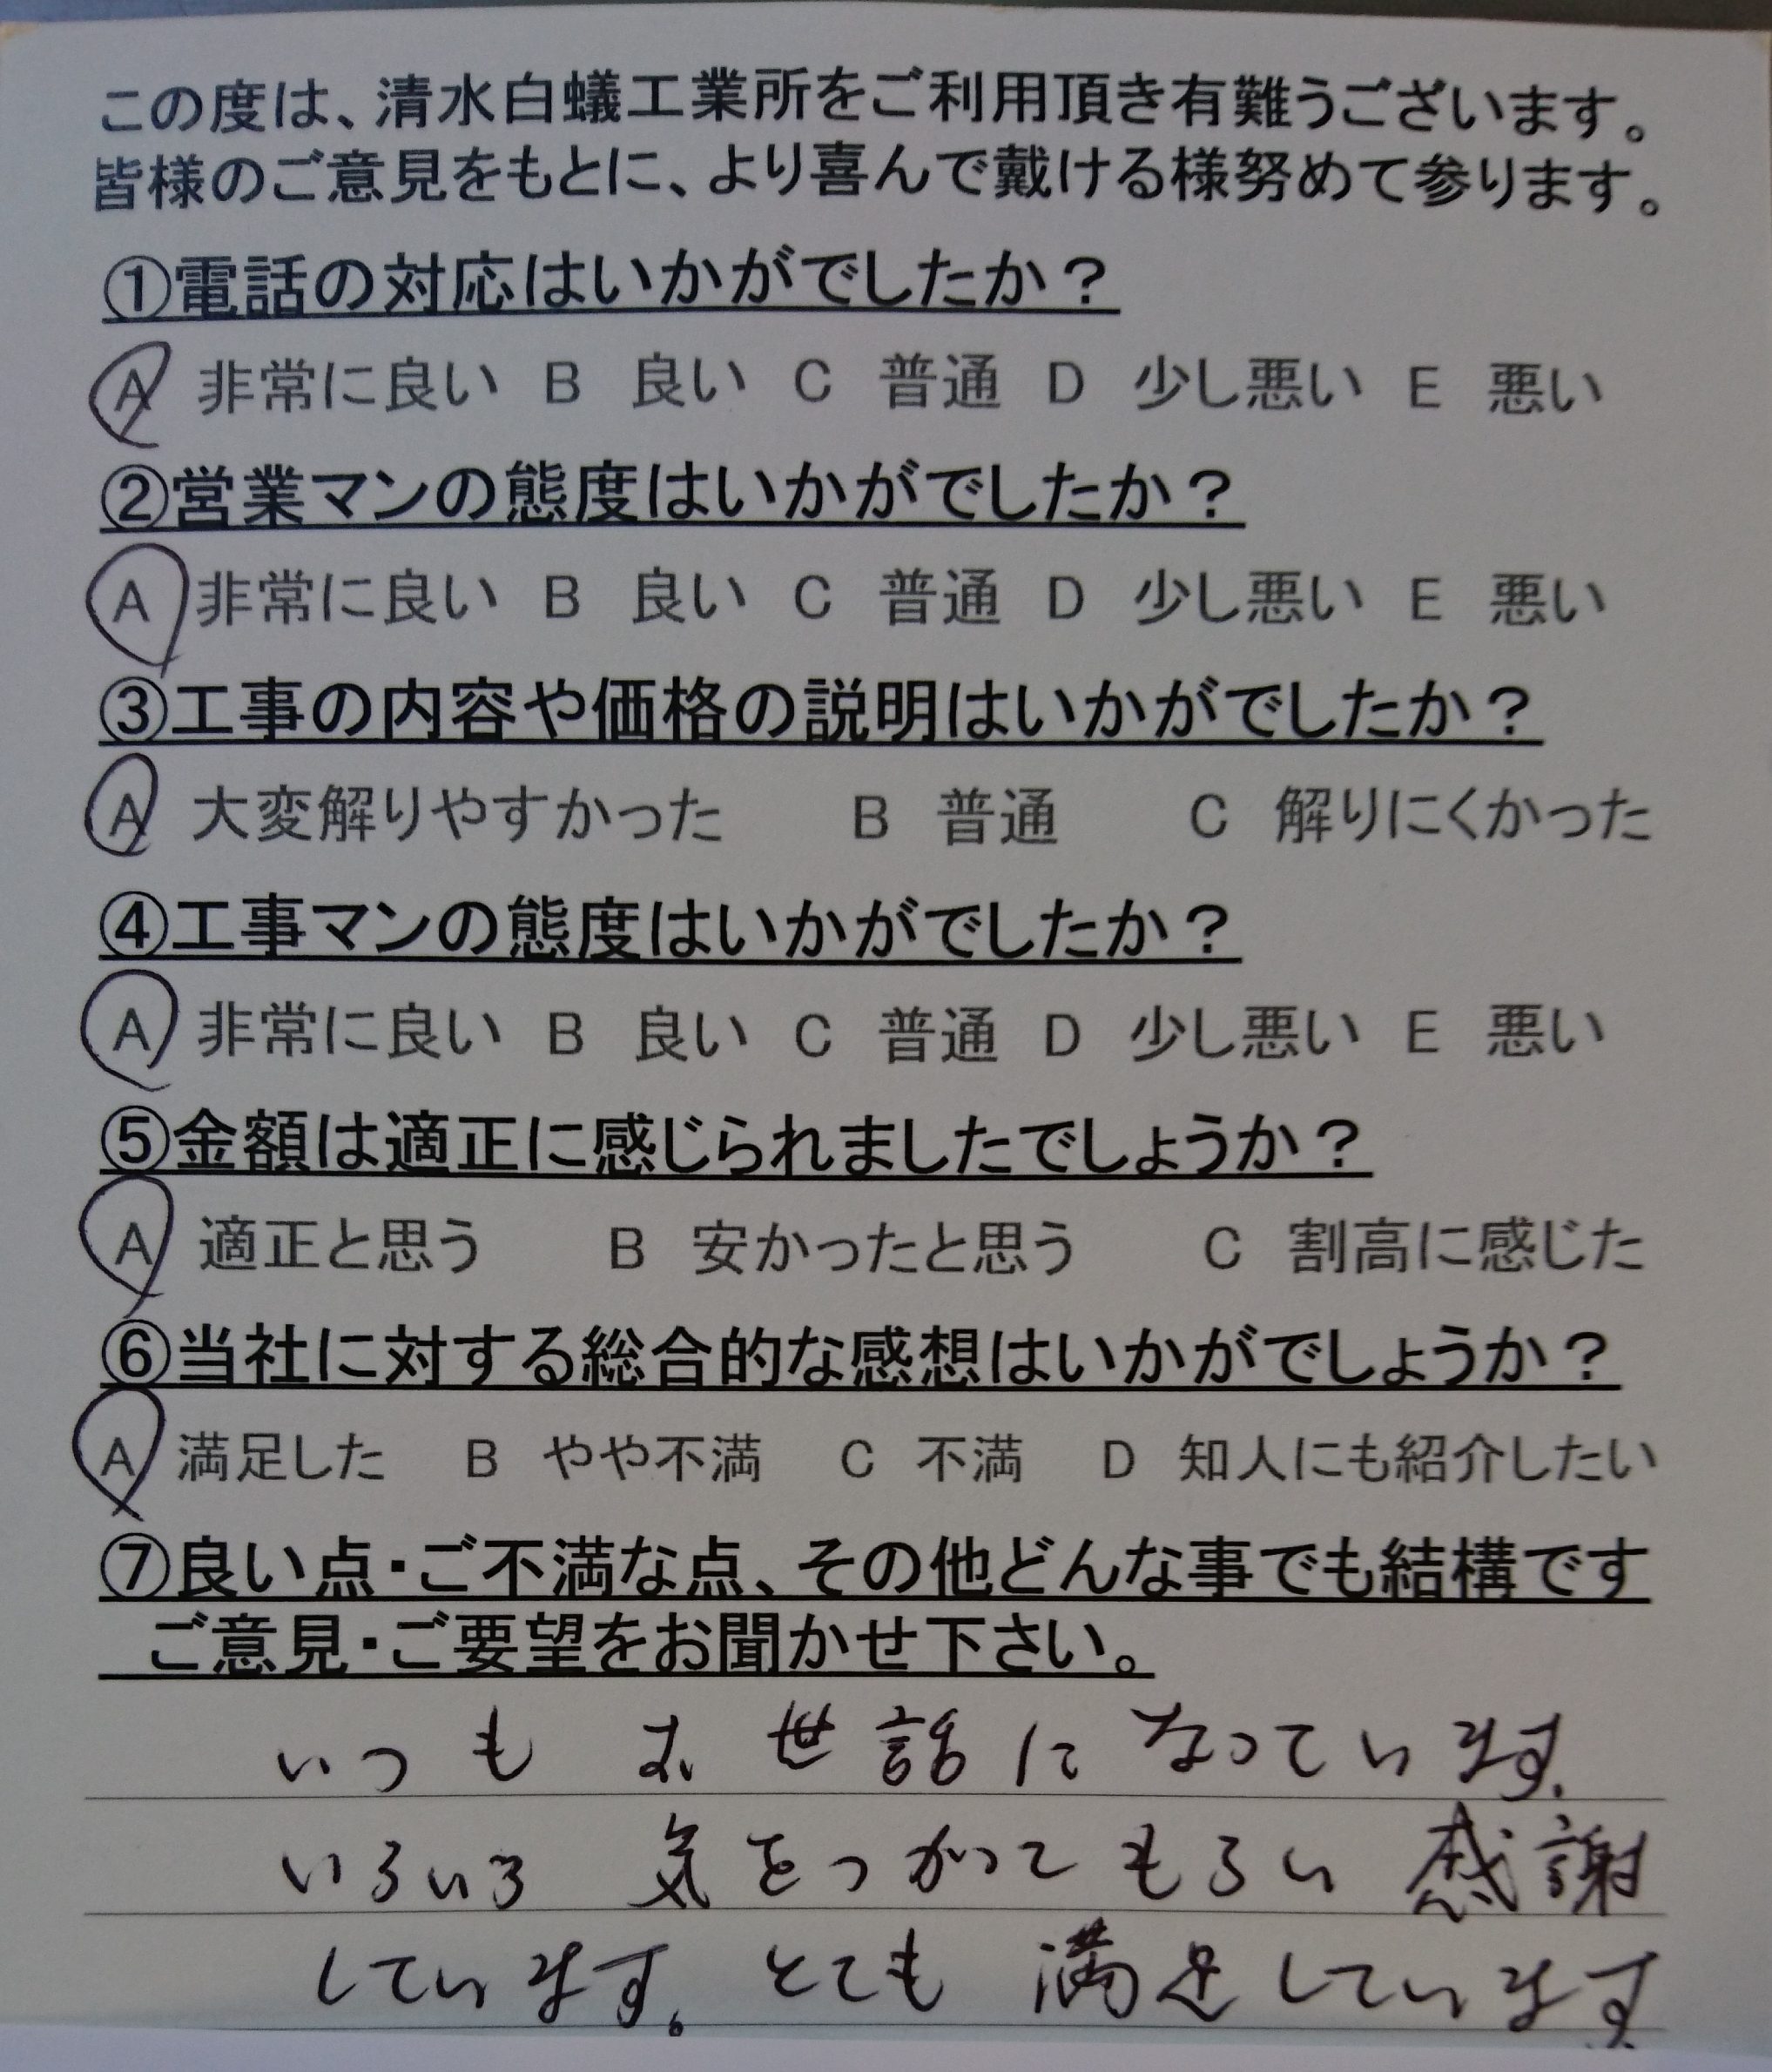 この度は、清水白蟻工業所をご利用頂き有難うございます。
皆様のご意見をもとに、より喜んで戴ける様努めて参ります。
①電話の対応はいかがでしたか？
A 非常に良い B 良い C 普通 D 少し悪い E 悪い
②営業マンの態度はいかがでしたか？
A 非常に良い B 良い C 普通 D 少し悪い E 悪い
③工事の内容や価格の説明はいかがでしたか？
A 大変解りやすかった B 普通 C 解りにくかった
④工事マンの態度はいかがでしたか？
A 非常に良い B 良い C 普通 D 少し悪い E 悪い
⑤金額は適正に感じられましたでしょうか？
A 適正と思う B 安かったと思う C 割高に感じた
⑥当社に対する総合的な感想はいかがでしょうか？
A 満足した B やや不満 C 不満 D 知人にも紹介したい
⑦良い点・ご不満な点、その他どんな事でも結構です
ご意見・ご要望をお聞かせ下さい。
いつも お世話に なっています.
いろいろ 気をつかって もらい 感謝
しています。とても 満足しています